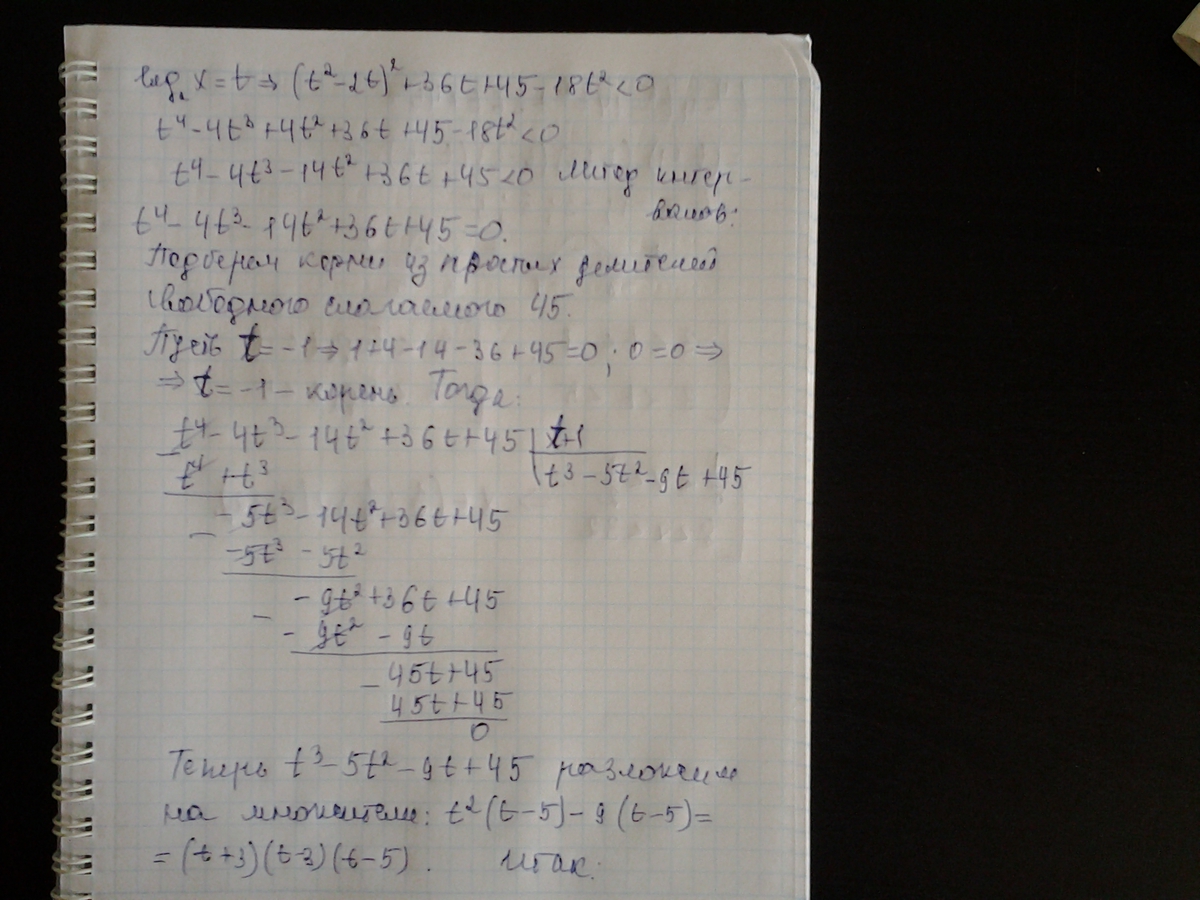 log₂ x = t ⇒ (t² - 2t)² + 36t + 45 - 18t² < 0
t⁴ - 4t³ + 4t² + 36t + 45 - 18t² < 0
t⁴ - 4t³ - 14t² + 36t + 45 < 0 Метод интер-
валов:
t⁴ - 4t³ - 14t² + 36t + 45 = 0.
Подберем корни из простых делителей
свободного слагаемого 45.
Пусть t = -1 ⇒ 1 + 4 - 14 - 36 + 45 = 0; 0 = 0 ⇒
⇒ t = -1 - корень. Тогда:
t⁴ - 4t³ - 14t² + 36t + 45 | t+1
t⁴ + t³ | t³ - 5t² - 9t + 45
- 5t³ - 14t² + 36t + 45
- 5t³ - 5t²
- 9t² + 36t + 45
- 9t² - 9t
45t + 45
45t + 45
0
Теперь t³ - 5t² - 9t + 45 разложим
на множители: t²(t - 5) - 9(t - 5) =
= (t + 3)(t - 3)(t - 5). Итак: